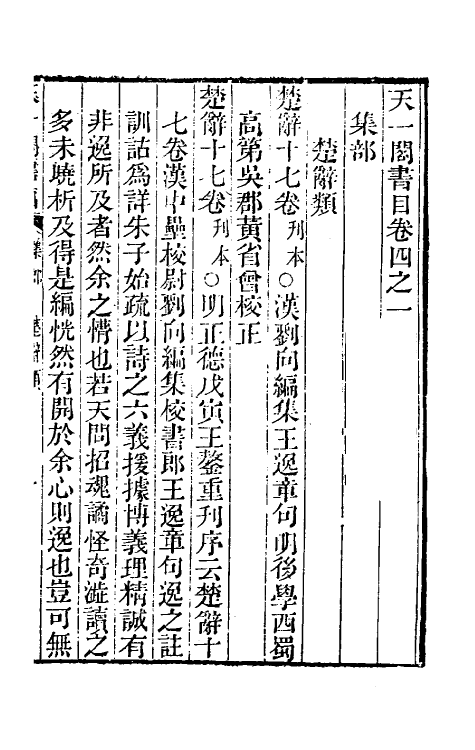 天一閣書目卷四之一
集部
楚辭類
楚辭十七卷刊本○漢劉向編集王逸章句明後學西蜀
高第吳郡黃省曾校正
楚辭十七卷刊本○明正德戊寅王鏊重刊序云楚辭十
七卷漢中壘校尉劉向編集校書郎王逸章句逸之註
訓詁爲詳朱子始疏以詩之六義援據博義理精誠有
非逸所及者然余之懵也若天問招魂譎怪奇澁讀之
多未曉析及得是編恍然有開於余心則逸也豈可無